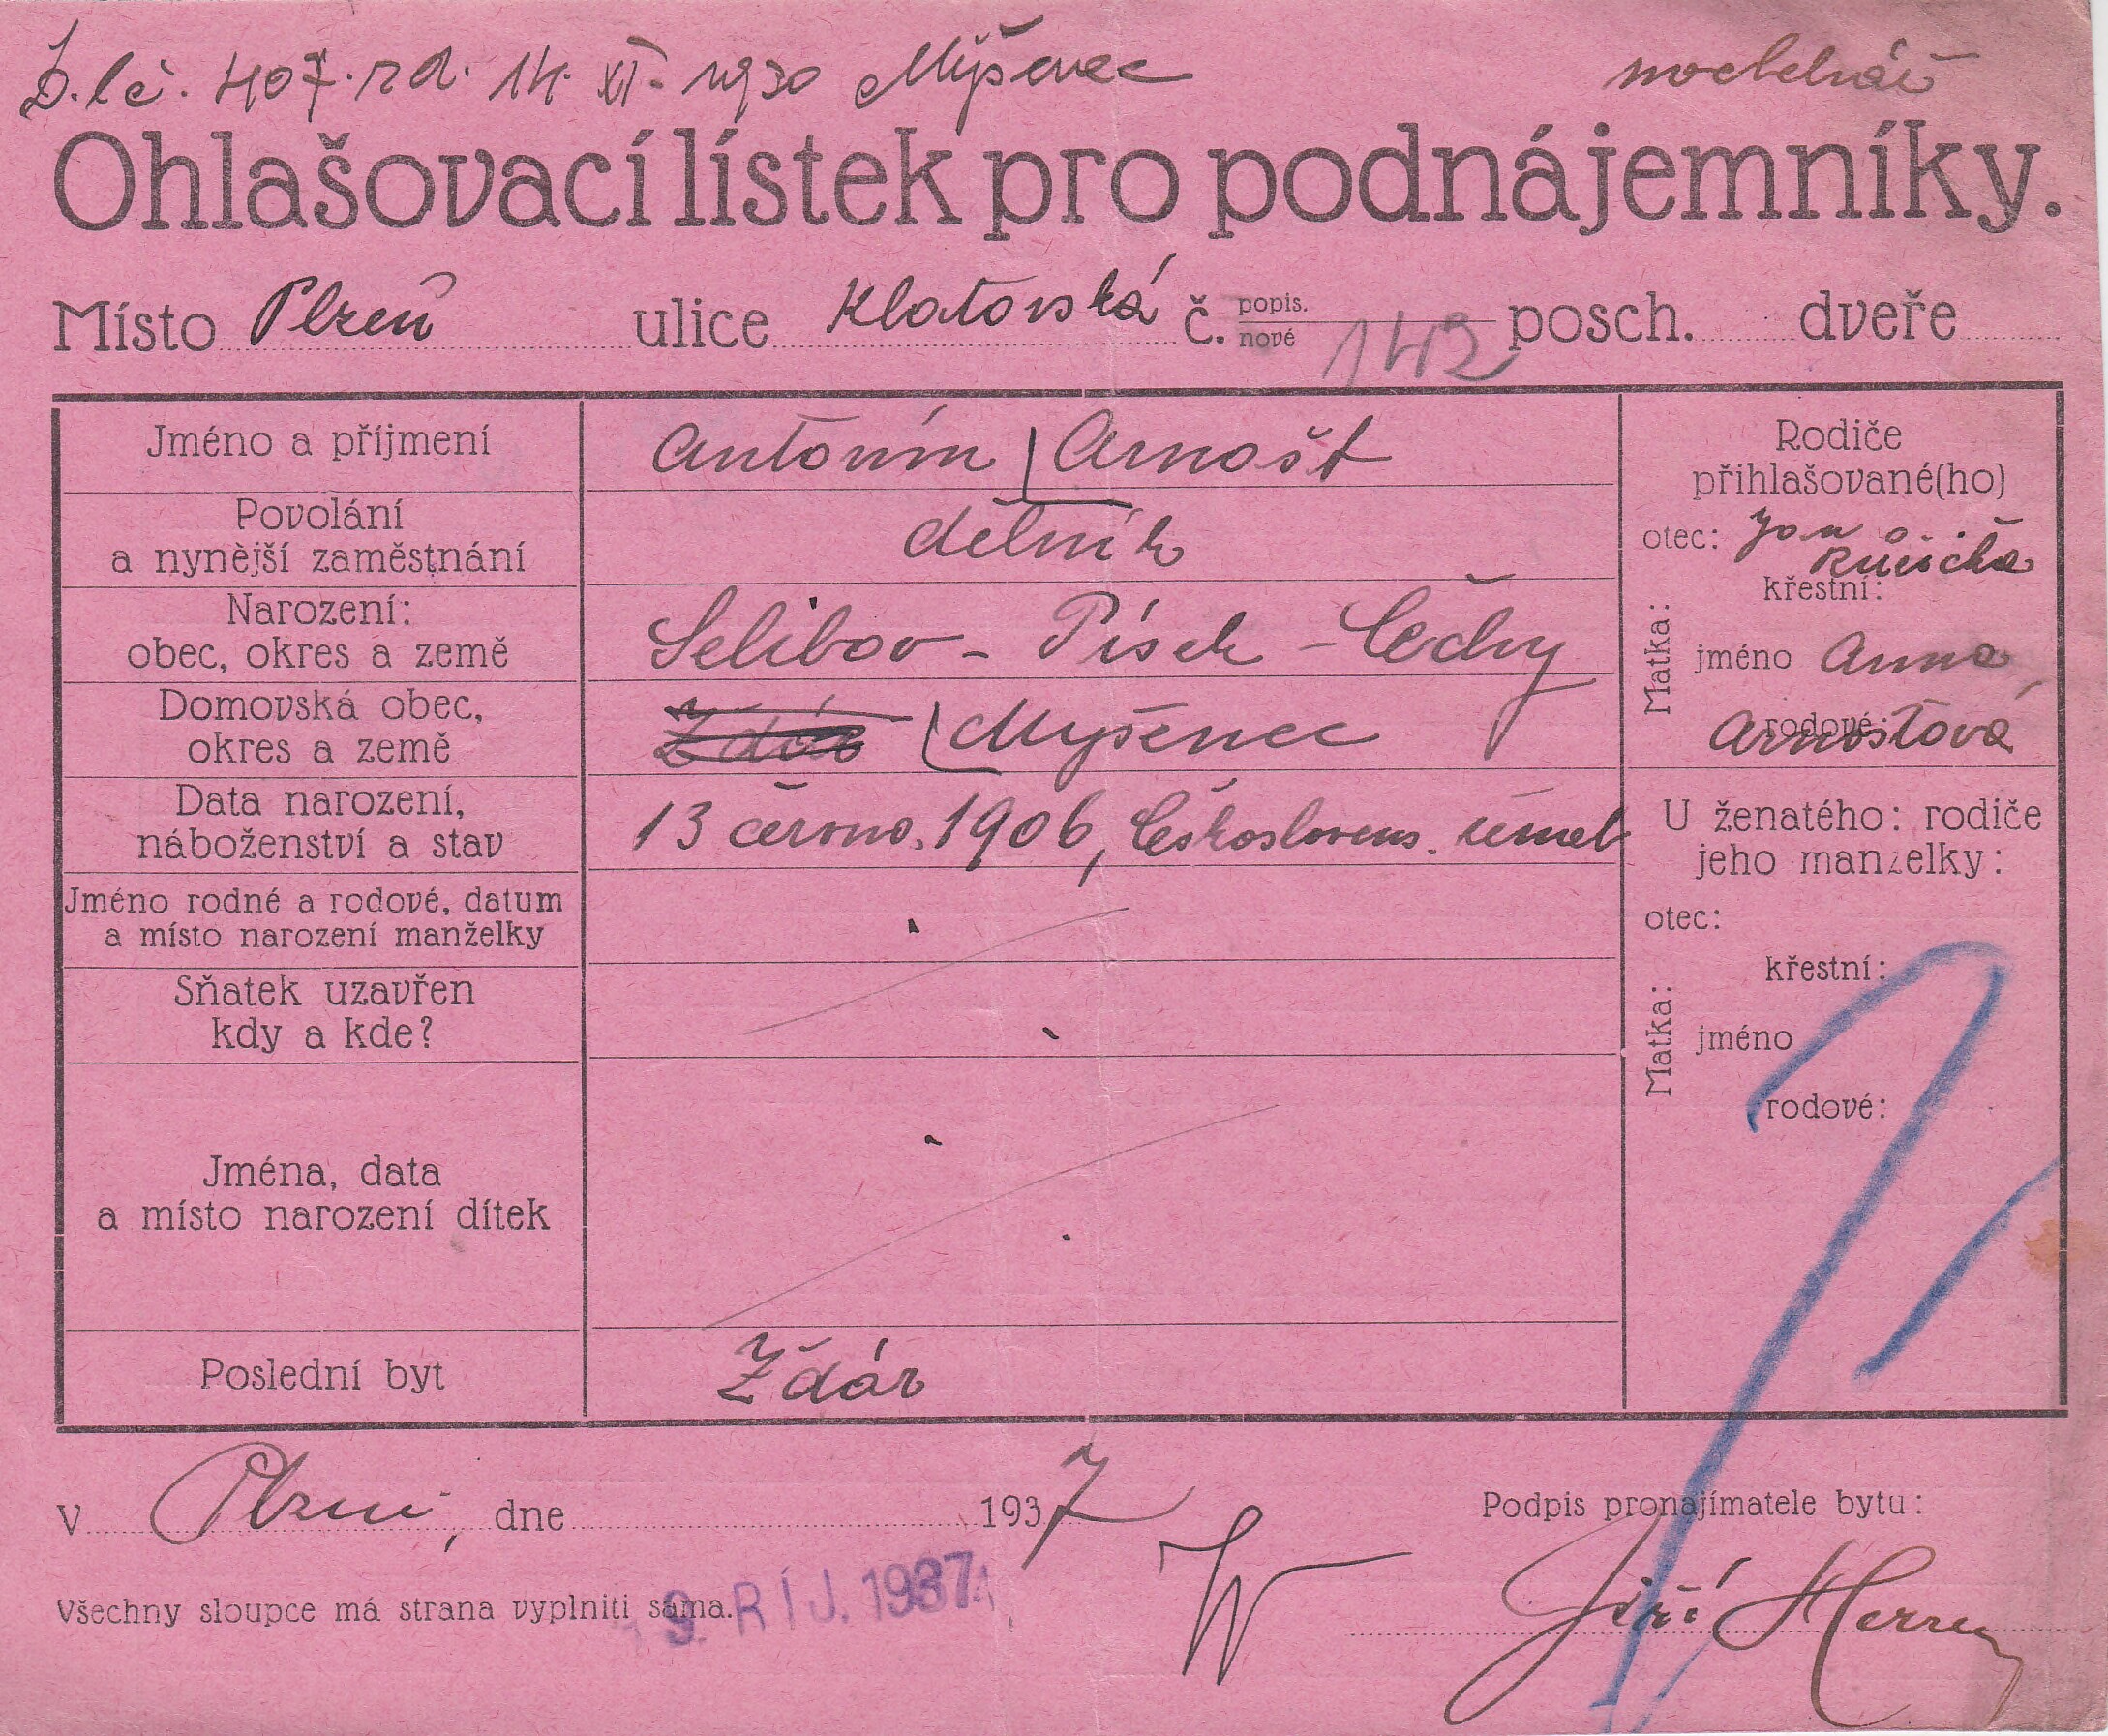 D. lč. 407. rd. 14. XI. 1930 Myšenec modelnář
Ohlašovací lístek pro podnájemníky.
Místo Plzeň ulice Klatovská č. popis. nové 142 posch. dveře
Jméno a příjmení Antonín Arnošt
Povolání
a nynější zaměstnání dělník
Narození:
obec, okres a země Selibov - Písek - Čechy
Domovská obec,
okres a země Ždár Myšenec
Data narození,
náboženství a stav 13 června. 1906, Českoslovens.
Jméno rodné a rodové, datum
a místo narození manželky
Sňatek uzavřen
kdy a kde?
Jména, data
a místo narození dítek
Poslední byt Ždár
Rodiče
přihlašované(ho)
otec: Jan
Růžička
Matka:
křestní:
jméno Anna
rodové:
Arnoštová
U ženatého: rodiče
jeho manželky:
otec:
Matka:
křestní:
jméno
rodové:
V Plzni, dne 1937
Podpis pronajímatele bytu:
Všechny sloupce má strana vyplniti sama.
9. ŘÍJ. 1937
Jiří